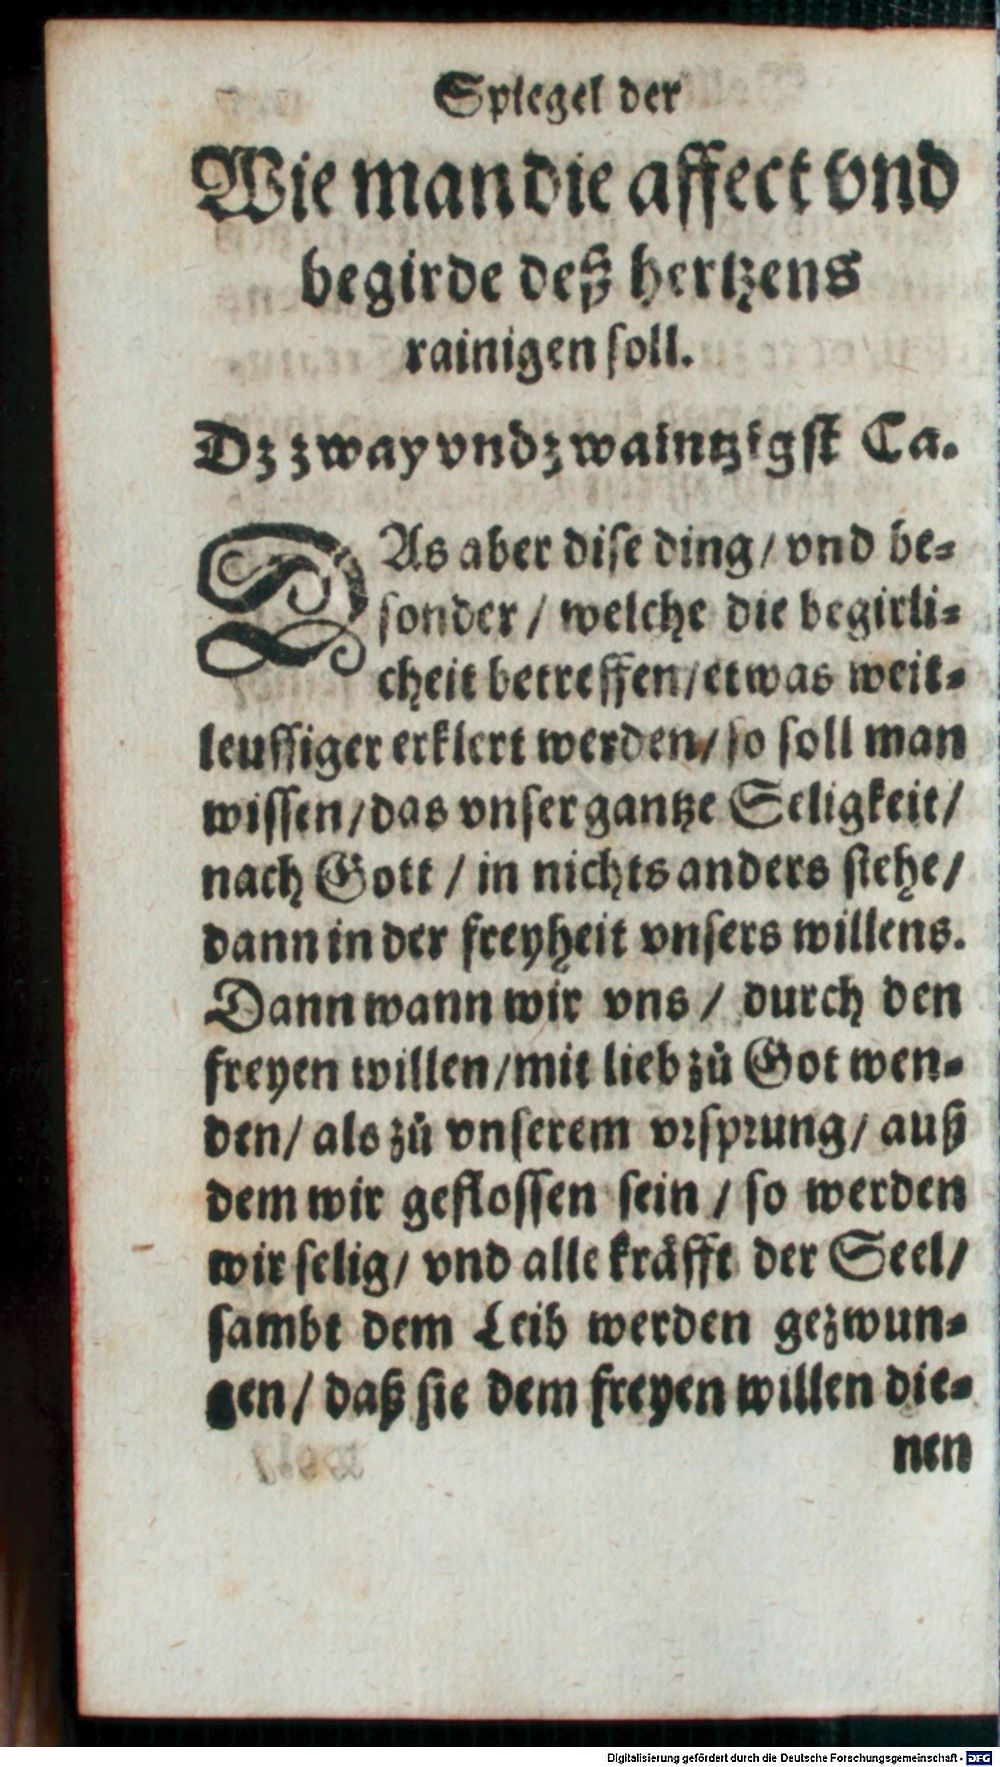 Spiegel der
Wie man die affect vnd
begirde deß hertzens
rainigen soll.
Dz zway vnd zwaintzigst Ca.
DAs aber dise ding / vnd be-
sonder / welche die begirli-
cheit betreffen / etwas weit-
leuffiger erklert werden / so soll man
wissen / das vnser gantze Seligkeit /
nach Gott / in nichts anders stehe /
dann in der freyheit vnsers willens.
Dann wann wir vns / durch den
freyen willen / mit lieb zů Got wen-
den / als zů vnserem vrsprung / auß
dem wir geflossen sein / so werden
wir selig / vnd alle kräfft der Seel /
sambt dem Leib werden gezwun-
gen / daß sie dem freyen willen die-
nen
Digitalisierung gefördert durch die Deutsche Forschungsgemeinschaft - DFG